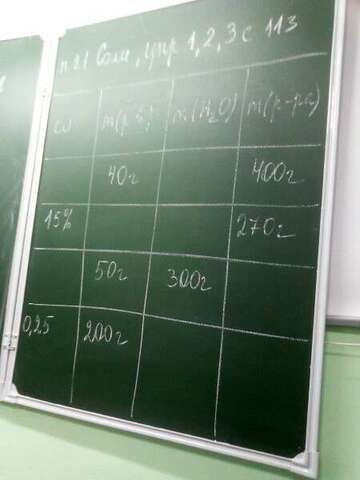 п.21 Соли, упр 1,2,3 с 113
ω m(р.в.) m(H₂O) m(р-ра)
40г 400г
15% 270г
50г 300г
0,25 200г